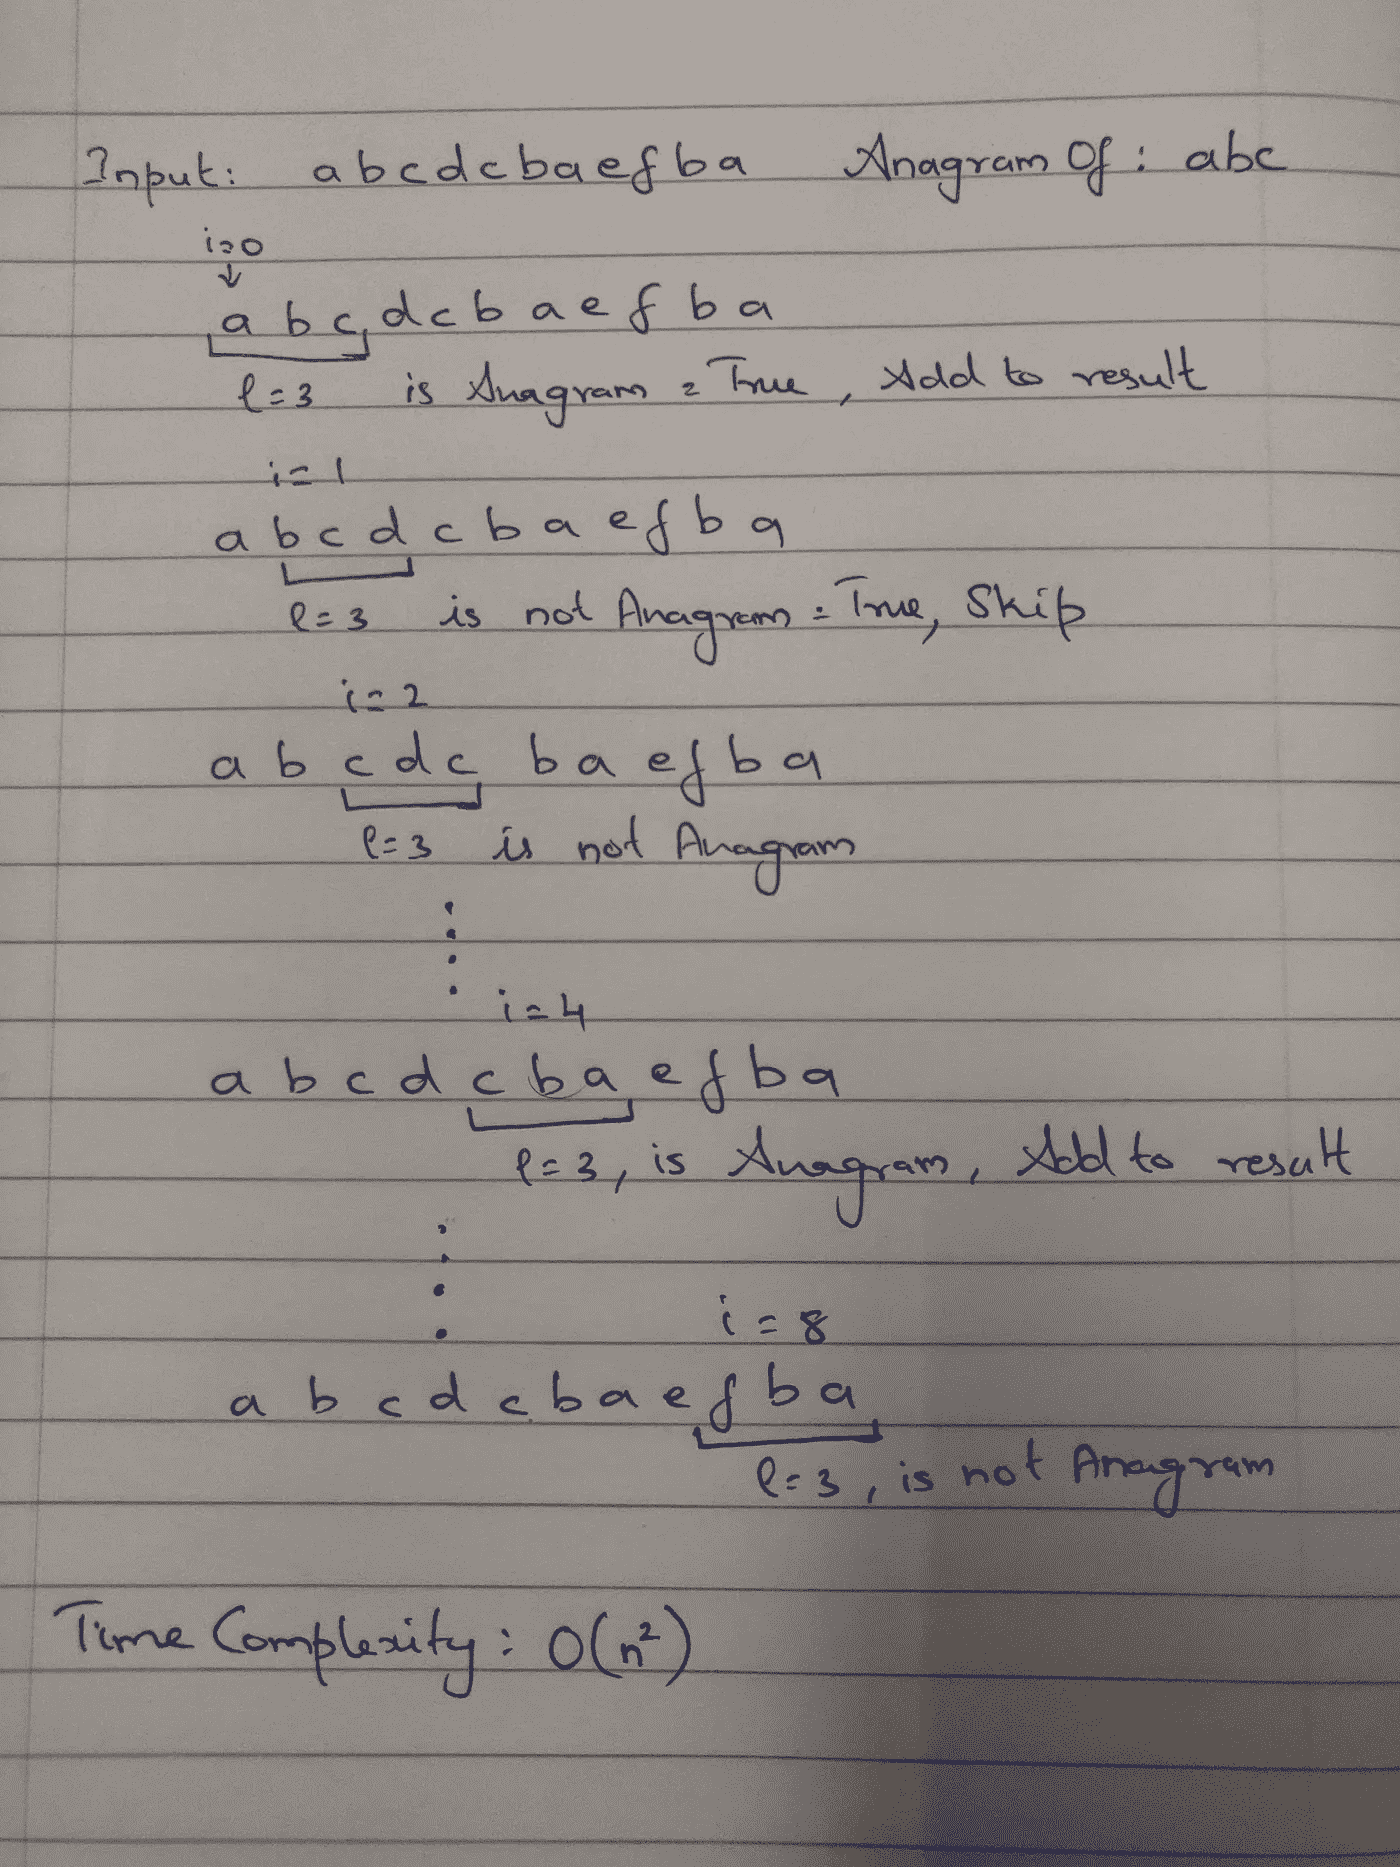 Input: abcdcbaefba Anagram Of: abc
i=0
a b c d c b a e f b a
l=3 is Anagram = True, Add to result
i=1
a b c d c b a e f b a
l=3 is not Anagram = True, Skip
i=2
a b c d c b a e f b a
l=3 is not Anagram
i=4
a b c d c b a e f b a
l=3, is Anagram, Add to result
i=8
a b c d c b a e f b a
l=3, is not Anagram
Time Complexity: O(n²)